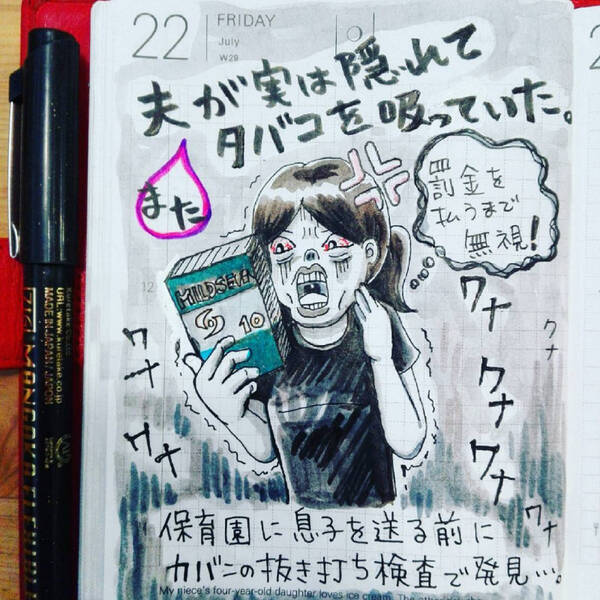 22
FRIDAY
July
W29
夫が実は隠れて
タバコを吸っていた。
また
罰金を
払うまで
無視!
12
MILDSEVE
10
ワナ
ワナ
ワナ
ワナ
ワナ
ワナ
ワナ
保育園に息子を送る前に
カバンの抜き打ち検査で発見…。
My niece's four-year-old daughter loves ice cream. The other
Kuretake Co.,Ltd.
URL:www.kuretake.co.jp
MADE IN JAPAN / JAPON
ZIG MANGAKA FLEXIBLE